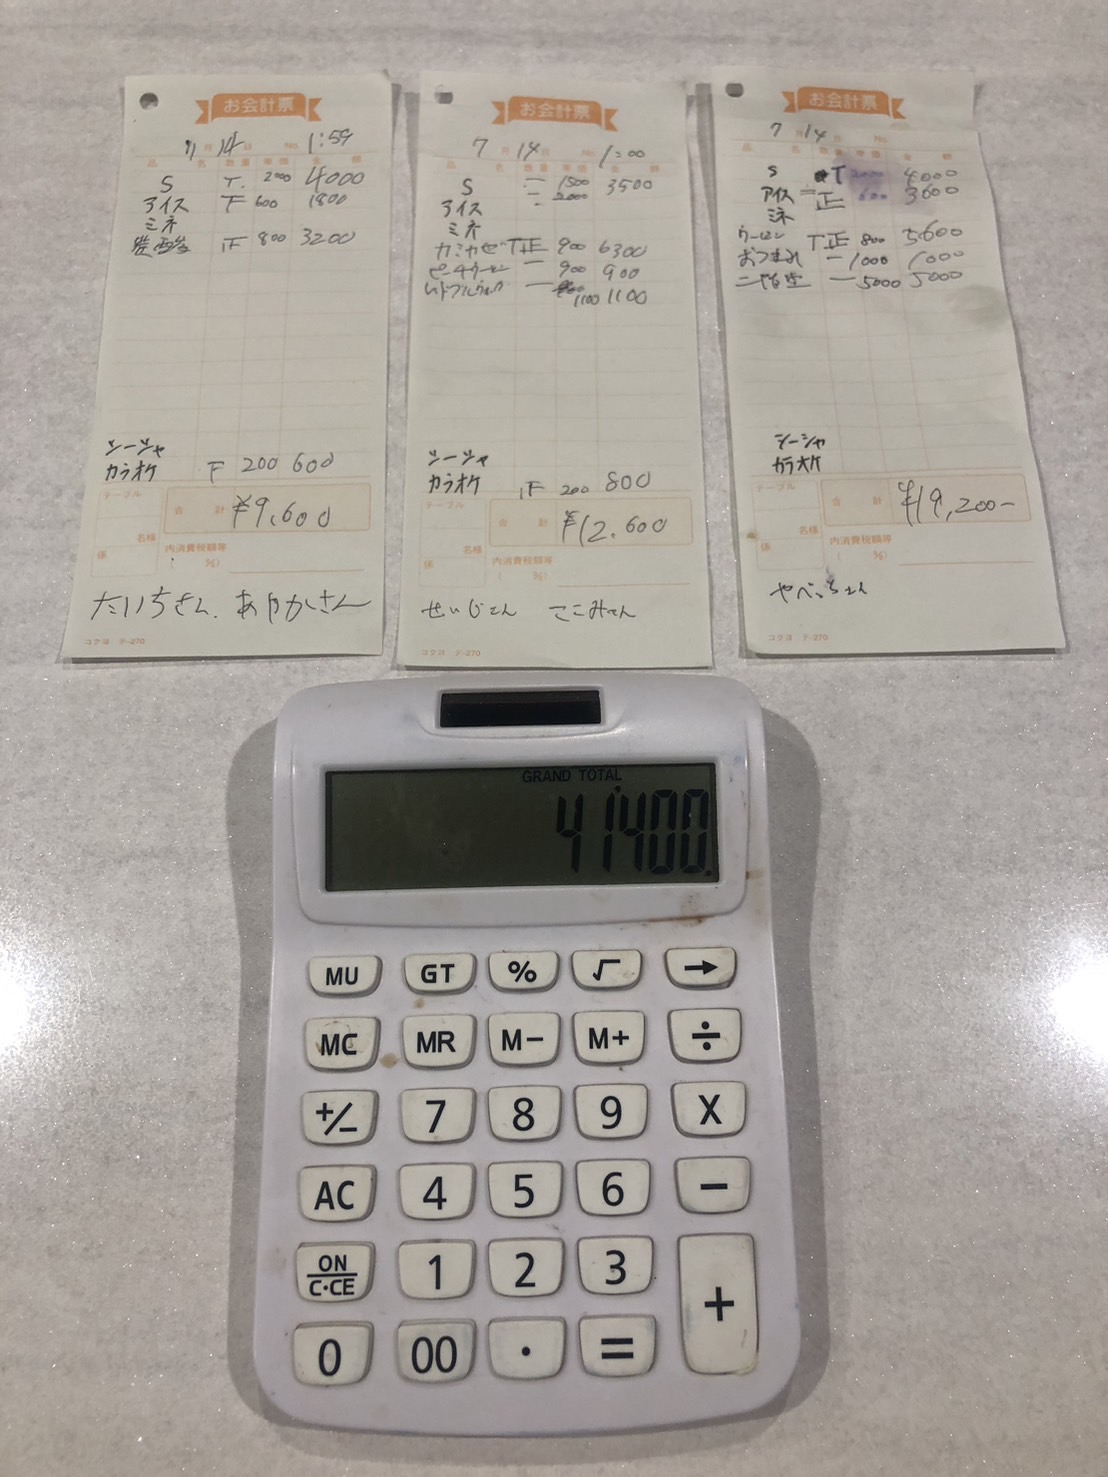 お会計票
7月 14日 No. 1:59
品 名 数量 単価 金 額
S T 2000 4000
アイス 下 600 1800
ミネ
炭酸 正 800 3200
シーシャ
カラオケ 下 200 600
テーブル
合 計 ¥9,600
名様
係
内消費税額等
( %)
たいちさん、あやかさん
コクヨ テ-270
お会計票
7月 14日 No. 1:00
品 名 数量 単価 金 額
S 一 1500 3500
アイス 一 2000
ミネ
カミカゼ T正 900 6300
ピーチウーロン 一 900 900
一 1100 1100
シーシャ
カラオケ 正 200 800
テーブル
合 計 ¥12,600
名様
係
内消費税額等
( %)
せいじさん ここみさん
コクヨ テ-270
お会計票
7月 14日 No.
品 名 数量 単価 金 額
S T 2000 4000
アイス 一正 600 3600
ミネ
ウーロン T正 800 5600
おつまみ 一 1000 1000
二階堂 一 5000 5000
シーシャ
カラオケ
テーブル
合 計 ¥19,200-
名様
係
内消費税額等
( %)
やべっちさん
コクヨ テ-270
GRAND TOTAL
41'400.
MU GT % √ →
MC MR M− M+ ÷
+/− 7 8 9 X
AC 4 5 6 −
ON
C·CE 1 2 3 +
0 00 · =